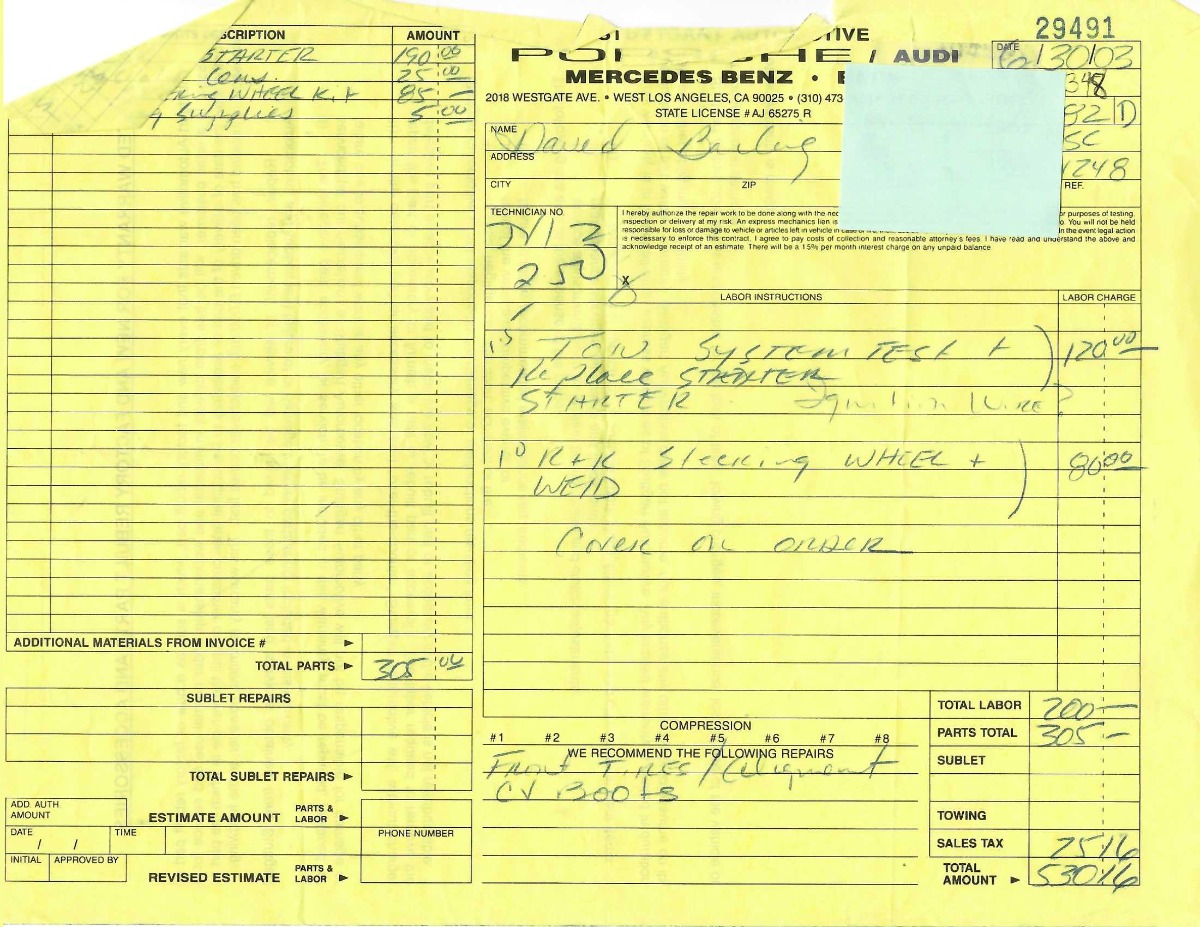 29491
SCRIPTION AMOUNT
STARTER 190 00
Core 25 00
ring WHEEL Kit 85 —
Supplies 5.00
/ AUDI
DATE 6/30/03
MERCEDES BENZ •
2018 WESTGATE AVE. • WEST LOS ANGELES, CA 90025 • (310) 473
STATE LICENSE # AJ 65275 R
82 D
SC
1248
REF.
NAME David
ADDRESS
CITY ZIP
TECHNICIAN NO.
250
I hereby authorize the repair work to be done along with the nec
r purposes of testing,
inspection or delivery at my risk. An express mechanics lien is
o. You will not be held
responsible for loss or damage to vehicle or articles left in vehicle in case of
In the event legal action
is necessary to enforce this contract, I agree to pay costs of collection and reasonable attorney's fees. I have read and understand the above and
acknowledge receipt of an estimate. There will be a 1.5% per month interest charge on any unpaid balance.
X
LABOR INSTRUCTIONS LABOR CHARGE
1.5 TOW SYSTEM TEST + 120.00
Replace STARTER
STARTER Ignition Wire?
1.0 R+R Steering WHEEL + 80.00
WELD
Cover on ORDER
ADDITIONAL MATERIALS FROM INVOICE #
TOTAL PARTS 305 00
SUBLET REPAIRS
TOTAL SUBLET REPAIRS
ADD. AUTH AMOUNT
ESTIMATE AMOUNT PARTS & LABOR
DATE / / TIME
PHONE NUMBER
INITIAL APPROVED BY
REVISED ESTIMATE PARTS & LABOR
COMPRESSION
#1 #2 #3 #4 #5 #6 #7 #8
WE RECOMMEND THE FOLLOWING REPAIRS
Front TIRES/Alignment
CV BOOTS
TOTAL LABOR 200 —
PARTS TOTAL 305 —
SUBLET
TOWING
SALES TAX 25.16
TOTAL AMOUNT 530.16